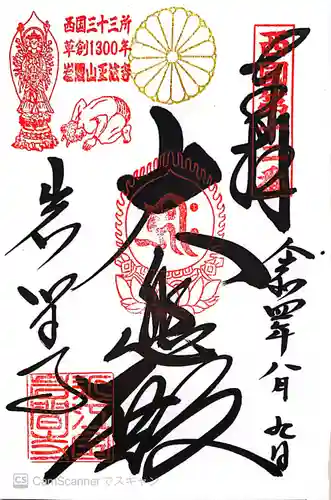 西国三十三所
草創1300年
岩間山正法寺
奉拝
西国第十二番
令和四年八月九日
大悲殿
岩間寺
CS CamScannerでスキャン